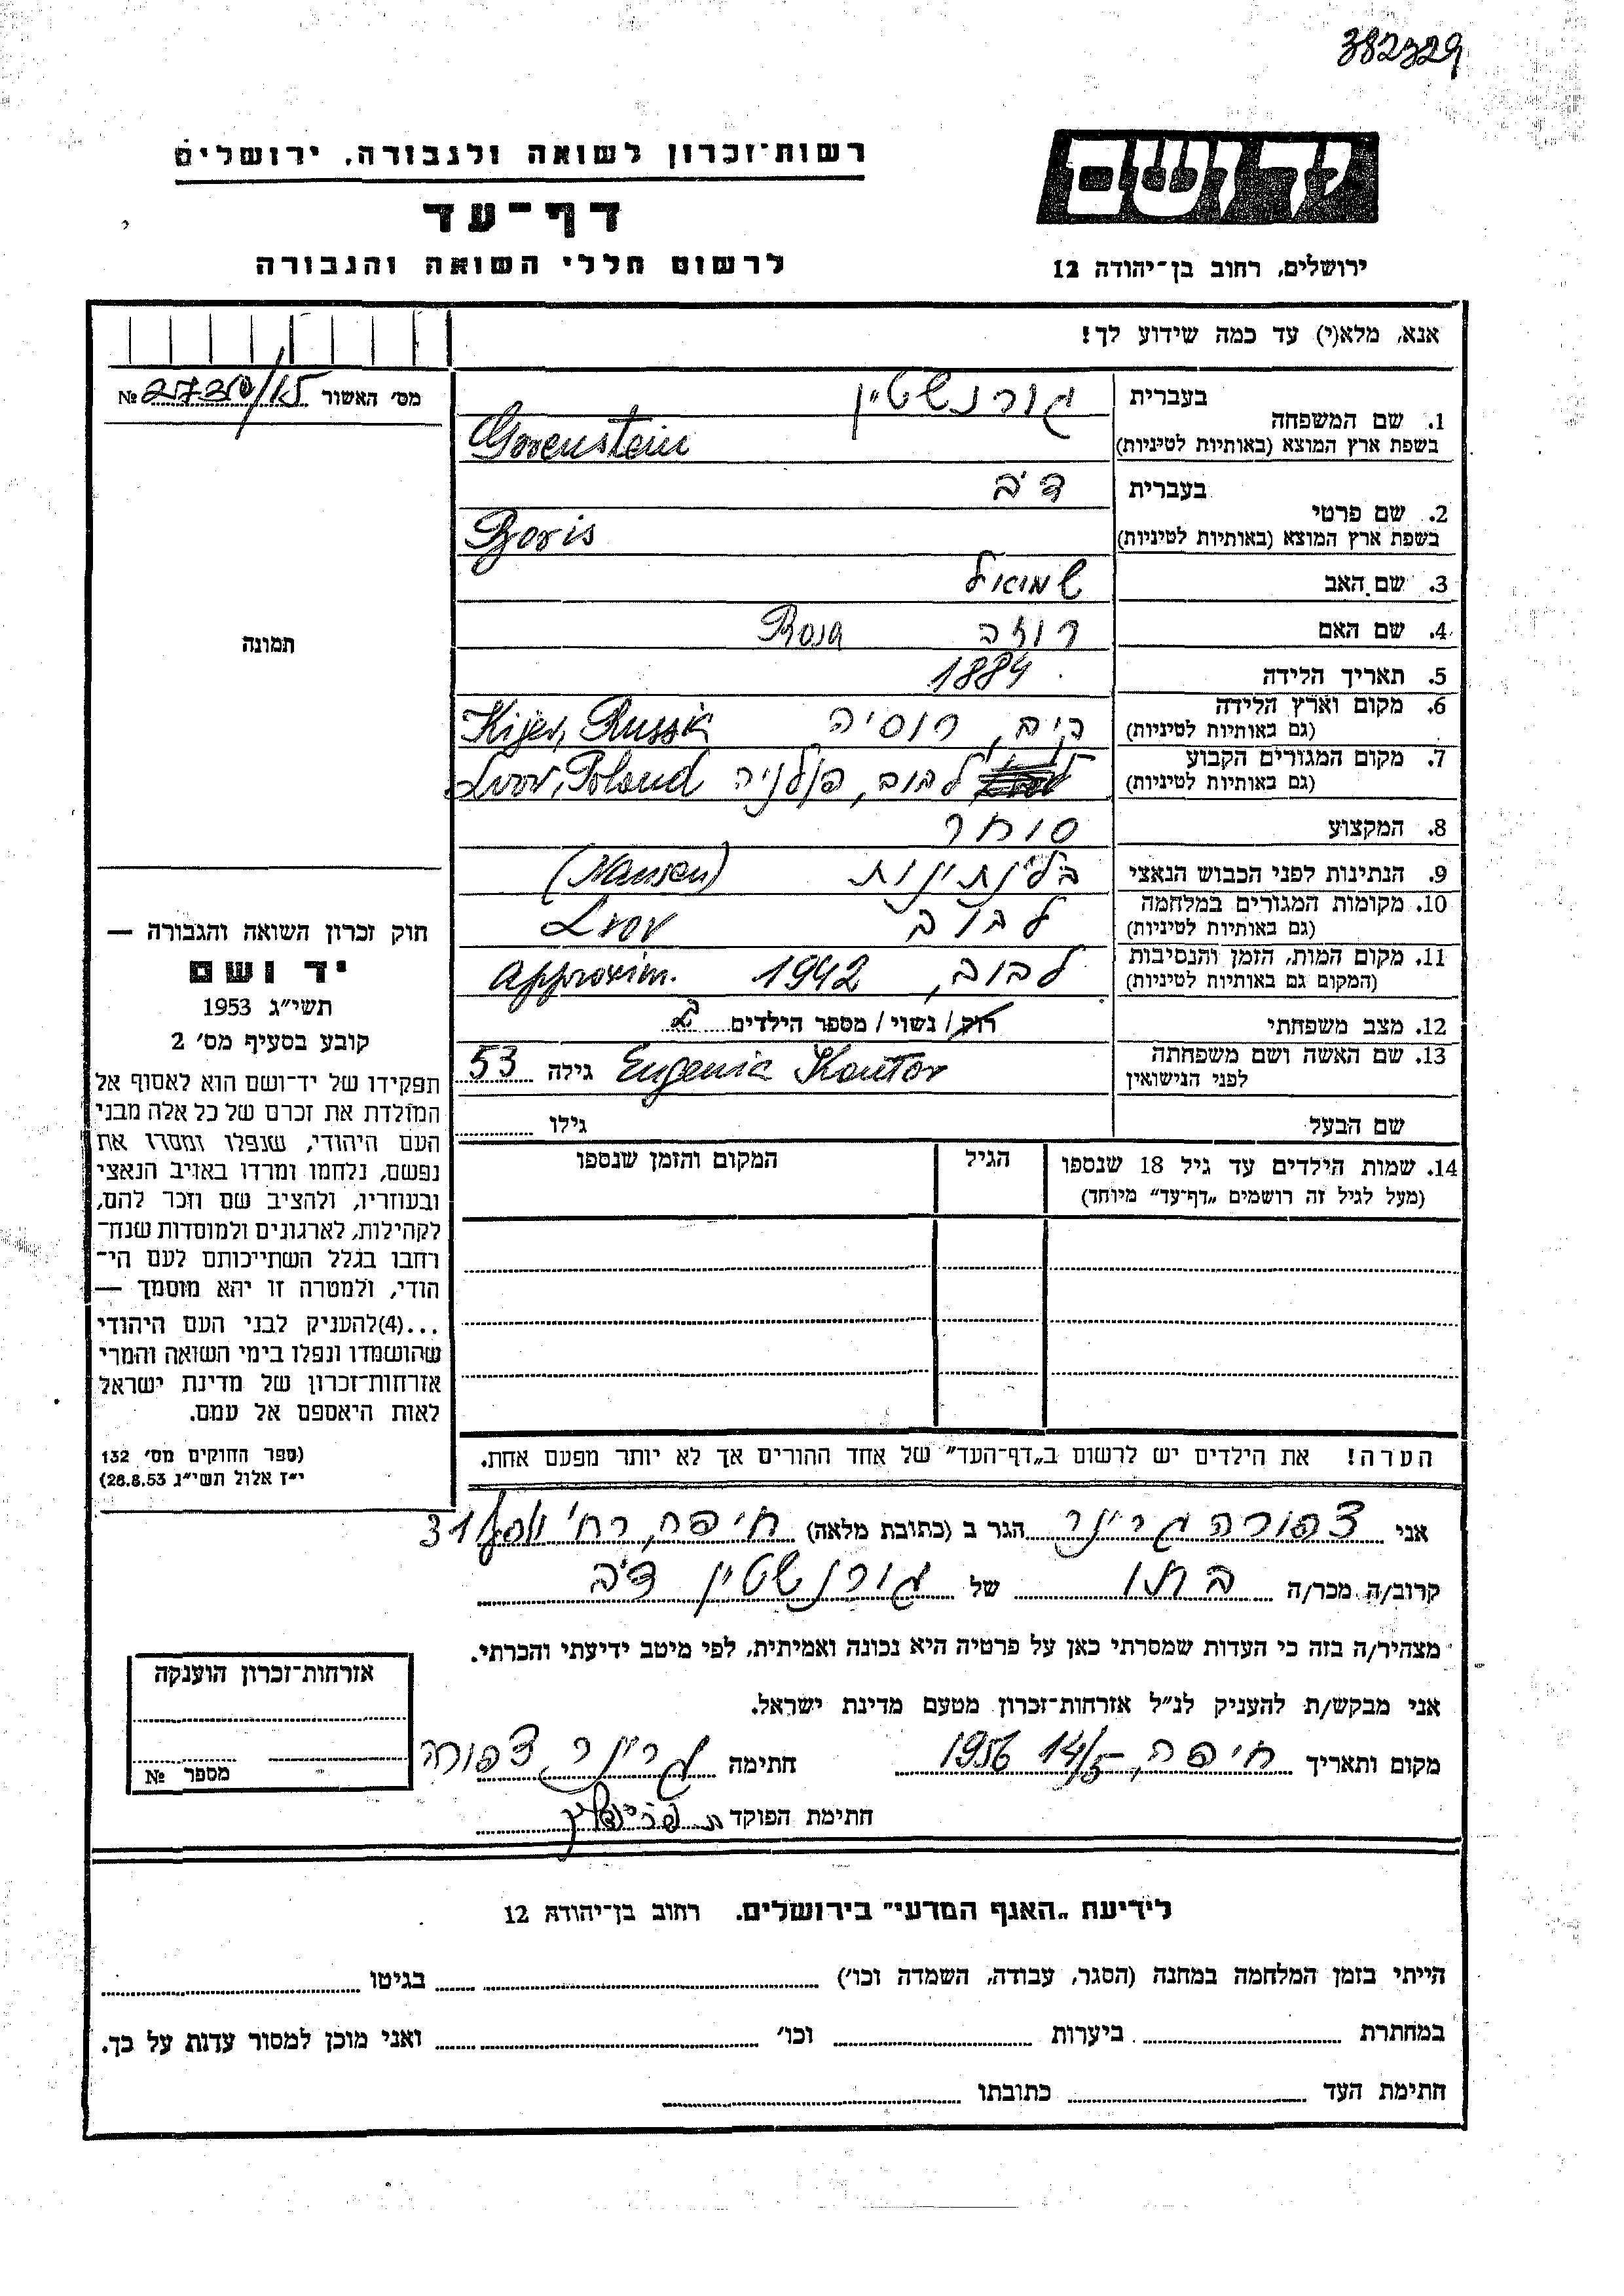 382329
רשות-זכרון לשואה ולגבורה, ירושלים
דף-עד
לרשום חללי השואה והגבורה
יד ושם
ירושלים, רחוב בן-יהודה 12
אנא, מלא(י) עד כמה שידוע לך!
מס׳ האשור № 27320/15
1. שם המשפחה
בעברית גורנשטיין
בשפת ארץ המוצא (באותיות לטיניות) Gorenstein
2. שם פרטי
בעברית דב
בשפת ארץ המוצא (באותיות לטיניות) Boris
3. שם האב שמואל
4. שם האם רוזה Rosa
5. תאריך הלידה 1884
6. מקום וארץ הלידה
(גם באותיות לטיניות) קיב, רוסיה Kijev, Russia
7. מקום המגורים הקבוע
(גם באותיות לטיניות) לבוב, פולניה Lvov, Poland
8. המקצוע סוחר
9. הנתינות לפני הכבוש הנאצי (Nansen)
10. מקומות המגורים במלחמה
(גם באותיות לטיניות) לבוב Lvov
11. מקום המות, הזמן והנסיבות
(המקום גם באותיות לטיניות) לבוב, 1942 approxim.
12. מצב משפחתי רוק / נשוי / מספר הילדים 2
13. שם האשה ושם משפחתה
לפני הנישואין Eugenia Kantor גילה 53
שם הבעל גילו
14. שמות הילדים עד גיל 18 שנספו
(מעל לגיל זה רושמים „דף-עד״ מיוחד)
הגיל
המקום והזמן שנספו
תמונה
חוק זכרון השואה והגבורה —
יד ושם
תשי״ג 1953
קובע בסעיף מס׳ 2
תפקידו של יד-ושם הוא לאסוף אל
המולדת את זכרם של כל אלה מבני
העם היהודי, שנפלו ומסרו את
נפשם, נלחמו ומרדו באויב הנאצי
ובעוזריו, ולהציב שם וזכר להם,
לקהילות, לארגונים ולמוסדות שנח-
רבו בגלל השתייכותם לעם הי-
הודי, ולמטרה זו יהא מוסמך —
...(4)להעניק לבני העם היהודי
שהושמדו ונפלו בימי השואה והמרי
אזרחות-זכרון של מדינת ישראל
לאות היאספם אל עמם.
(ספר החוקים מס׳ 132
י״ז אלול תשי״ג 28.8.53)
הערה! את הילדים יש לרשום ב„דף-העד״ של אחד ההורים אך לא יותר מפעם אחת.
אני צפורה גרינר הגר ב (כתובת מלאה) חיפה, רח׳ 31
קרוב/ה מכר/ה בתו של גורנשטין דב
מצהיר/ה בזה כי העדות שמסרתי כאן על פרטיה היא נכונה ואמיתית, לפי מיטב ידיעתי והכרתי.
אני מבקש/ת להעניק לנ״ל אזרחות-זכרון מטעם מדינת ישראל.
מקום ותאריך חיפה, 14/5 1956 חתימה גרינר צפורה
חתימת הפוקד
אזרחות-זכרון הוענקה
מספר №
לידיעת „האגף המדעי״ בירושלים. רחוב בן-יהודה 12
הייתי בזמן המלחמה במחנה (הסגר, עבודה, השמדה וכו׳) בגיטו
במחתרת ביערות וכו׳ ואני מוכן למסור עדות על כך.
חתימת העד כתובתו